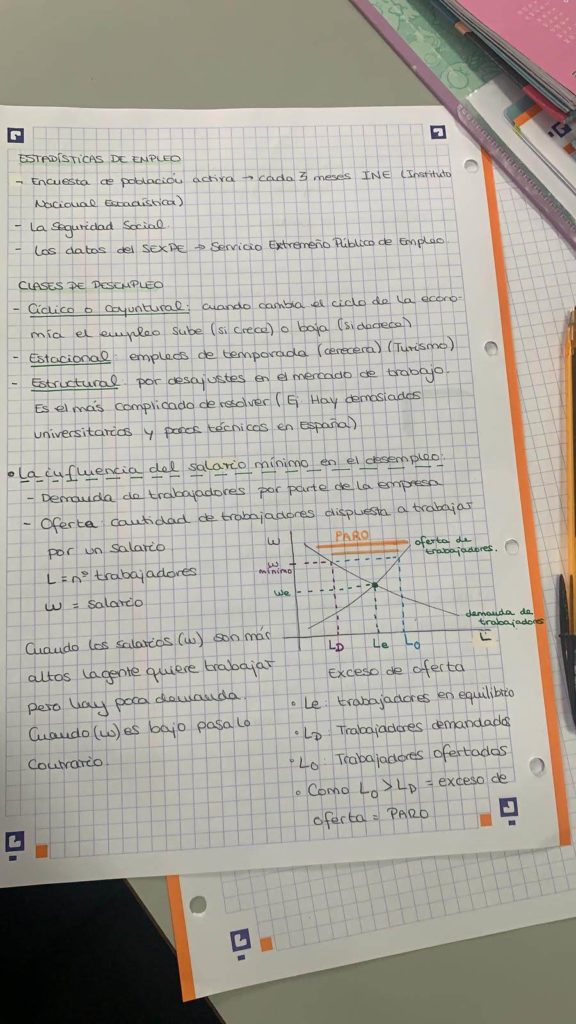 ESTADÍSTICAS DE EMPLEO
- Encuesta de población activa → cada 3 meses INE (Instituto
Nacional Estadística)
- La Seguridad Social
- Los datos del SEXPE → Servicio Extremeño Público de Empleo.
CLASES DE DESEMPLEO
- Cíclico o coyuntural: cuando cambia el ciclo de la econo-
mía el empleo sube (si crece) o baja (si decrece)
- Estacional: empleos de temporada (cerecera) (Turismo)
- Estructural: por desajustes en el mercado de trabajo.
Es el más complicado de resolver (Ej Hay demasiados
universitarios y pocos técnicos en España)
• La influencia del salario mínimo en el desempleo:
- Demanda de trabajadores por parte de la empresa
- Oferta: cantidad de trabajadores dispuesta a trabajar
por un salario
L = nº trabajadores
w = salario
Cuando los salarios (w) son más
altos la gente quiere trabajar
pero hay poca demanda.
Cuando (w) es bajo pasa lo
contrario.
w
PARO
oferta de
trabajadores.
w
mínimo
we
demanda de
trabajadores
L
LD
Le
LO
Exceso de oferta
• Le: trabajadores en equilibrio
• LD: Trabajadores demandados
• LO: Trabajadores ofertados
• Como LO > LD = exceso de
oferta = PARO